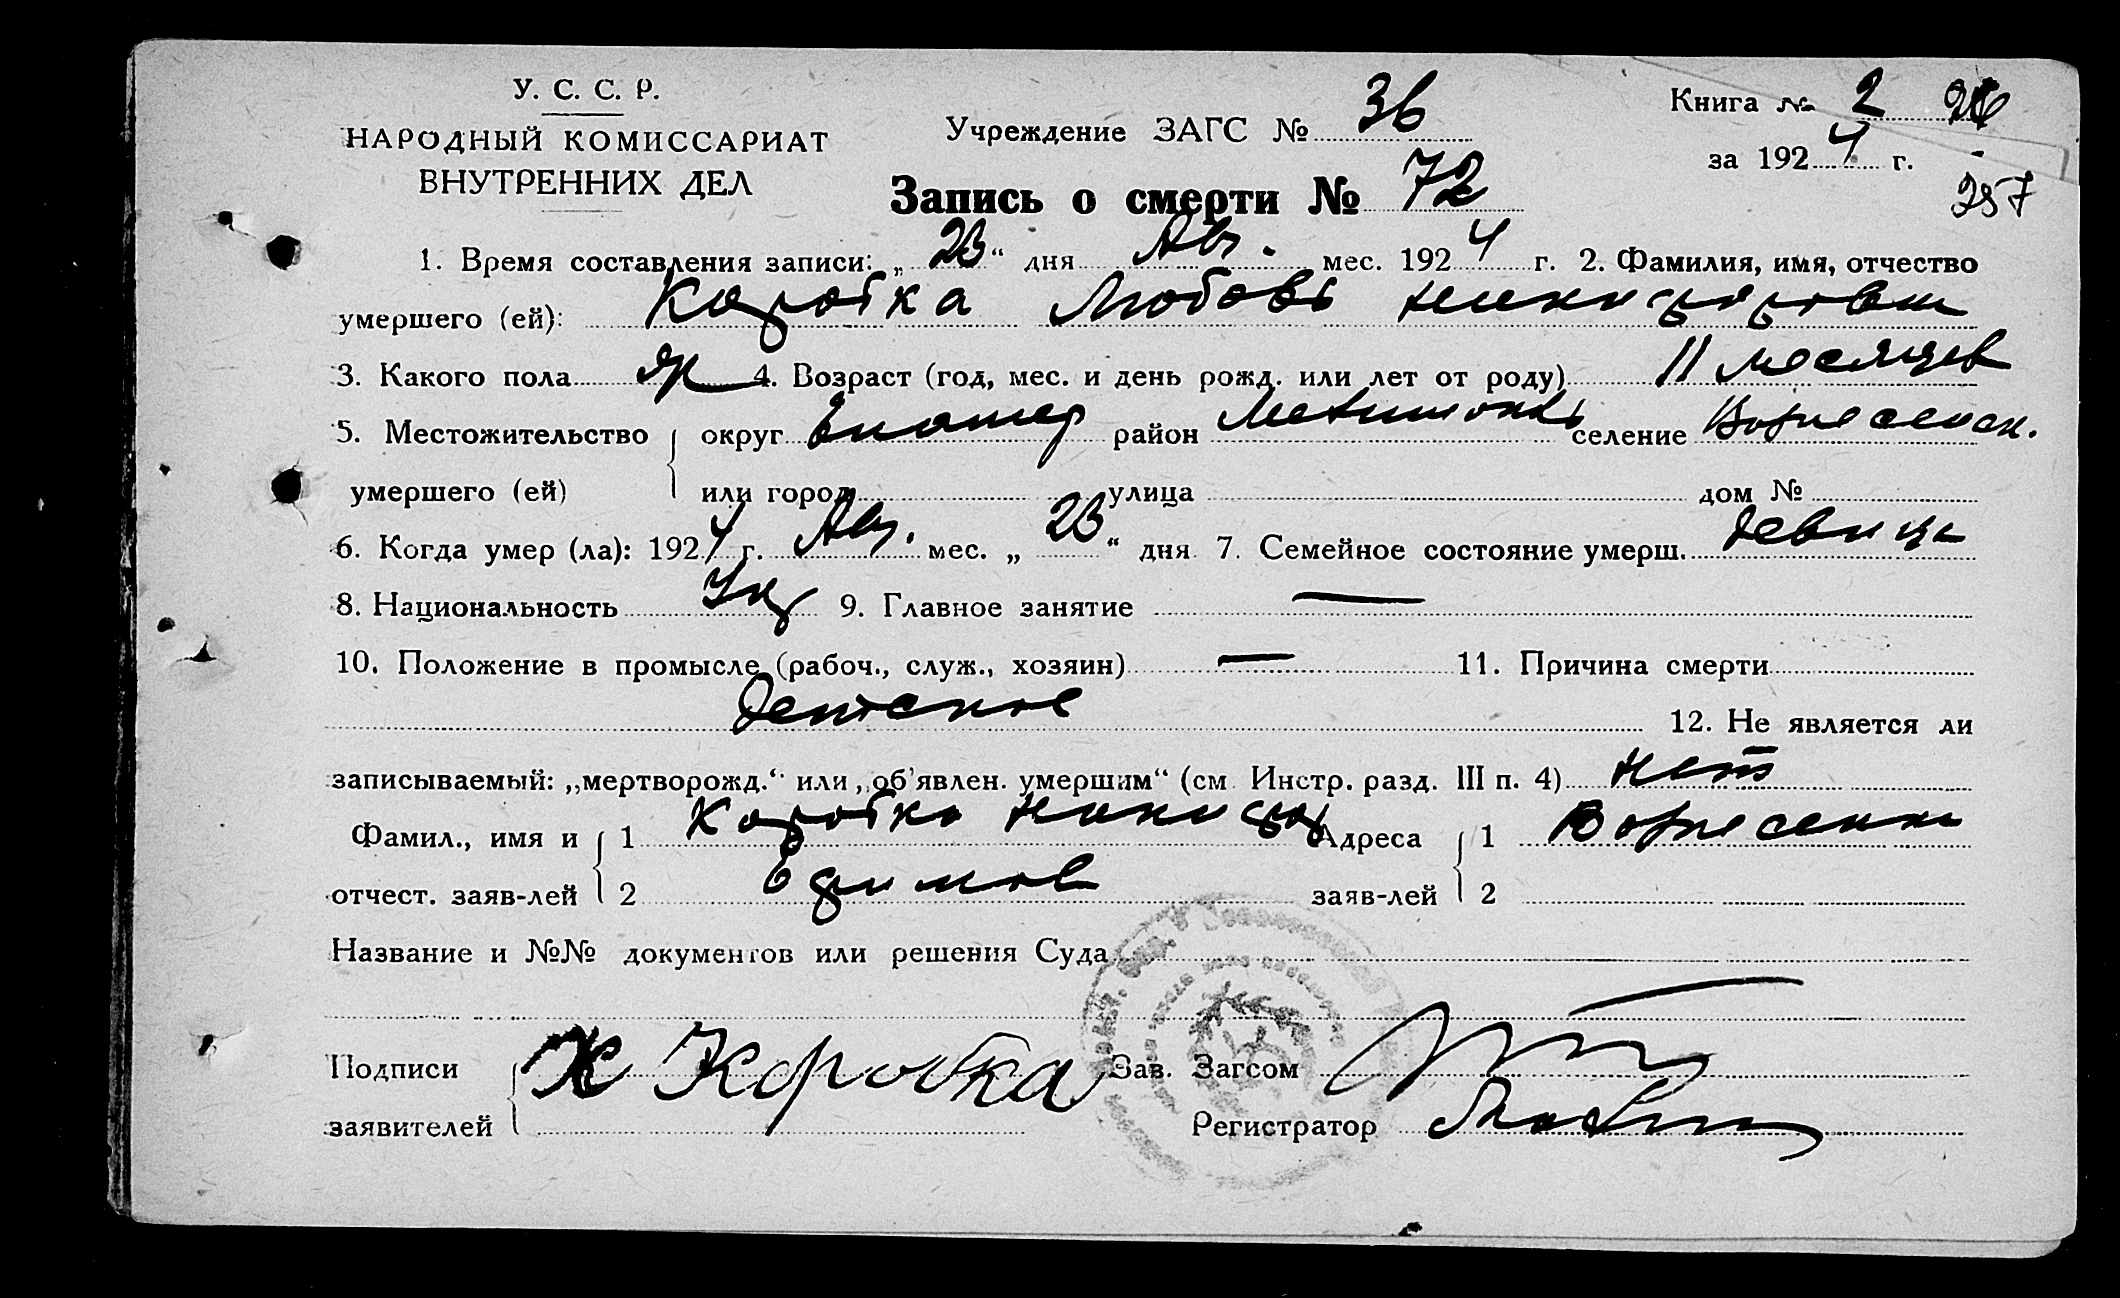 У. С. С. Р.
НАРОДНЫЙ КОМИССАРИАТ
ВНУТРЕННИХ ДЕЛ
Учреждение ЗАГС № 36
Книга № 2
за 1924 г.
257
Запись о смерти № 72
1. Время составления записи: „23“ дня Авг. мес. 1924 г. 2. Фамилия, имя, отчество
умершего (ей): Коротка Любовь Никифоровн
3. Какого пола ж 4. Возраст (год, мес. и день рожд. или лет от роду) 11 месяцев
5. Местожительство округ район селение Вознесенск.
умершего (ей) или город улица дом №
6. Когда умер (ла): 1924 г. Авг. мес. „23“ дня 7. Семейное состояние умерш. девица
8. Национальность Укр 9. Главное занятие —
10. Положение в промысле (рабоч., служ., хозяин) — 11. Причина смерти
Детское 12. Не является ли
записываемый: „мертворожд.“ или „об'явлен. умершим“ (см. Инстр. разд. III п. 4) нет
Фамил., имя и 1 Коротка Никифор Адреса 1 Вознесенка
отчест. заяв-лей 2 Ефимов заяв-лей 2
Название и №№ документов или решения Суда
Подписи Н Коротка Зав. Загсом
заявителей Регистратор